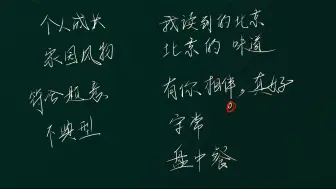 个人成长
家国风物
符合题意
不典型
我读到的北京
北京的 味道
有你相伴,真好
字常
盘中餐